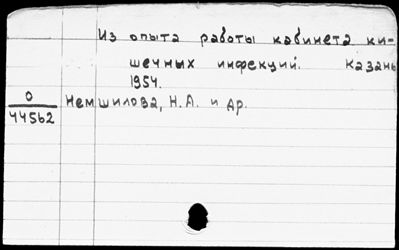 Из опыта работы кабинета ки-
шечных инфекций. Казань
1954.
О
44562
Немшилова, Н.А. и др.